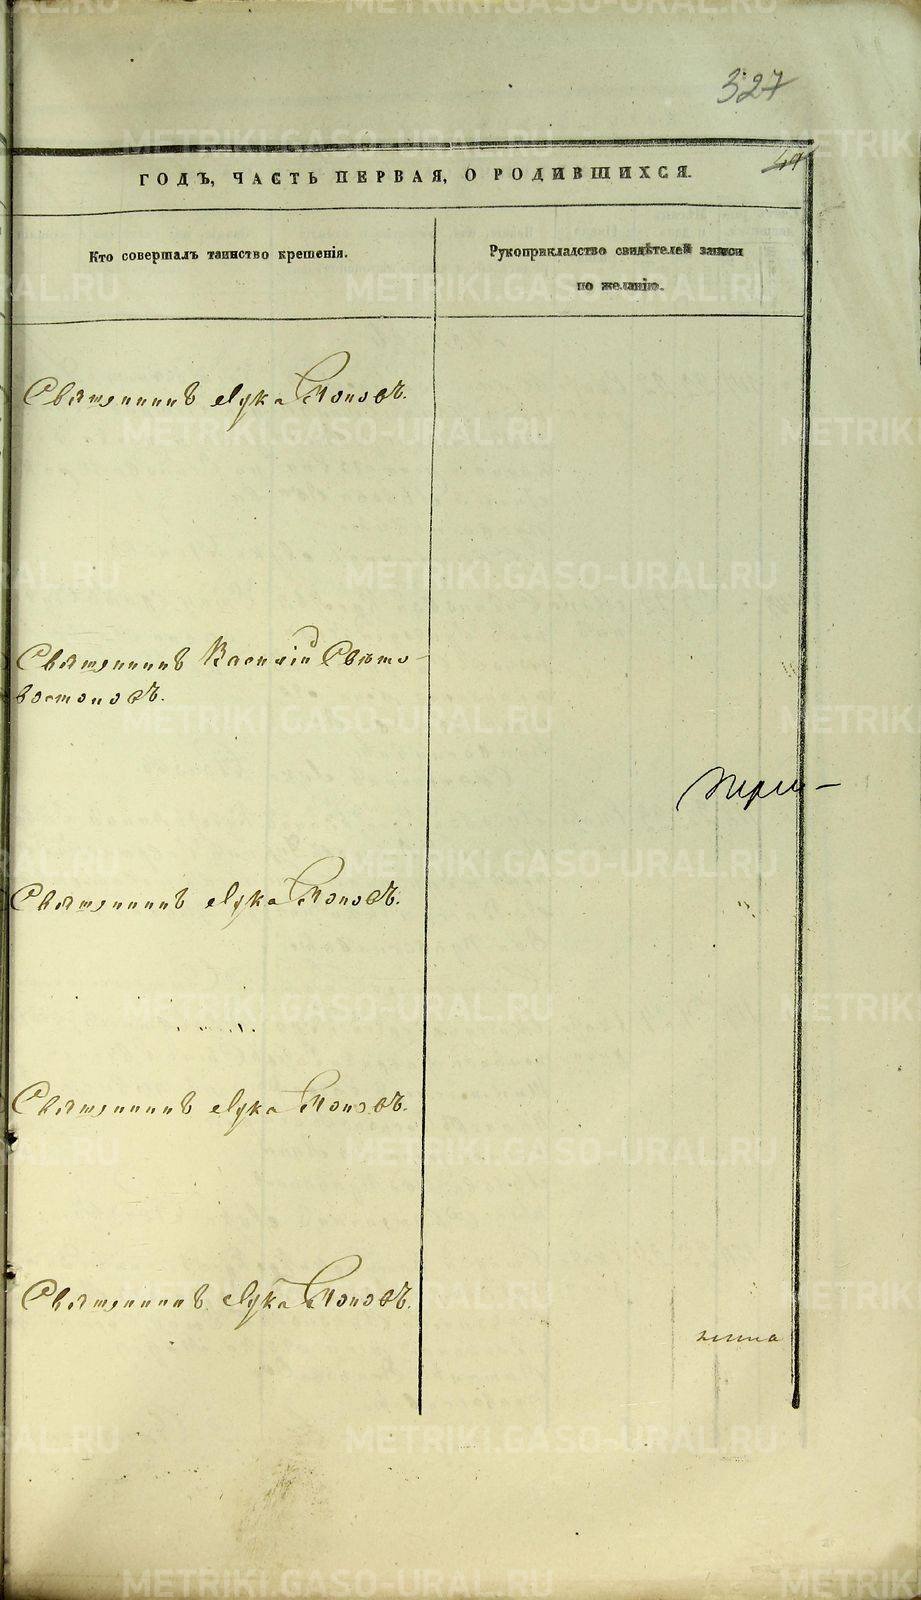 327
ГОДЪ, ЧАСТЬ ПЕРВАЯ, О РОДИВШИХСЯ.
Кто совершалъ таинство крещенія.
Рукоприкладство свидѣтелей записи
по желанію.
Священникъ Лука Поповъ.
Священникъ Василій Свѣто-
востоковъ.
Священникъ Лука Поповъ.
Священникъ Лука Поповъ.
Священникъ Лука Поповъ.
METRIKI.GASO-URAL.RU